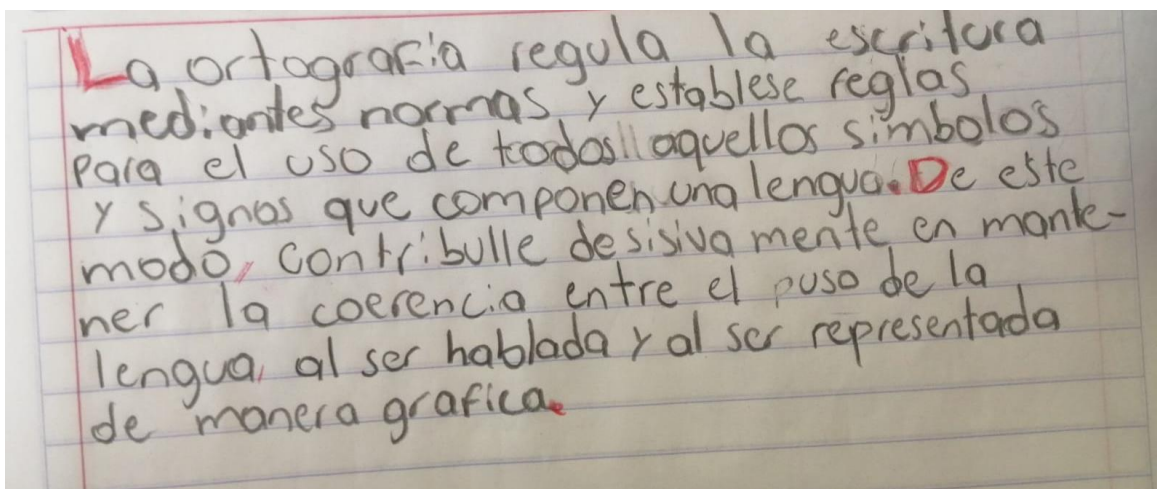 La ortografia regula la escritura
mediantes normas y establese reglas
para el uso de todas aquellos simbolos
y signos que componen una lengua. De este
modo, contribulle desisiva mente en mante-
ner la coerencia entre el uso de la
lengua, al ser hablada y al ser representada
de manera grafica.